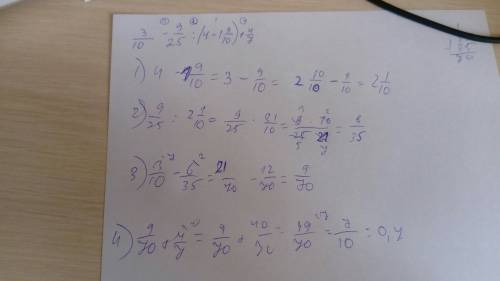 3/10 - 9/25 : (4 - 1 9/10) + 4/7
1) 4 - 1 9/10 = 3 - 9/10 = 2 10/10 - 9/10 = 2 1/10
2) 9/25 : 2 1/10 = 9/25 : 21/10 = = 6/35
3) 3/10 - 6/35 = 21/70 - 12/70 = 9/70
4) 9/70 + 4/7 = 9/70 + 40/70 = 49/70 = 7/10 = 0,7